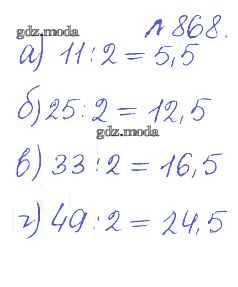 №868.
gdz.moda
а) 11:2 = 5,5
б) 25:2 = 12,5
gdz.moda
в) 33:2 = 16,5
г) 49:2 = 24,5